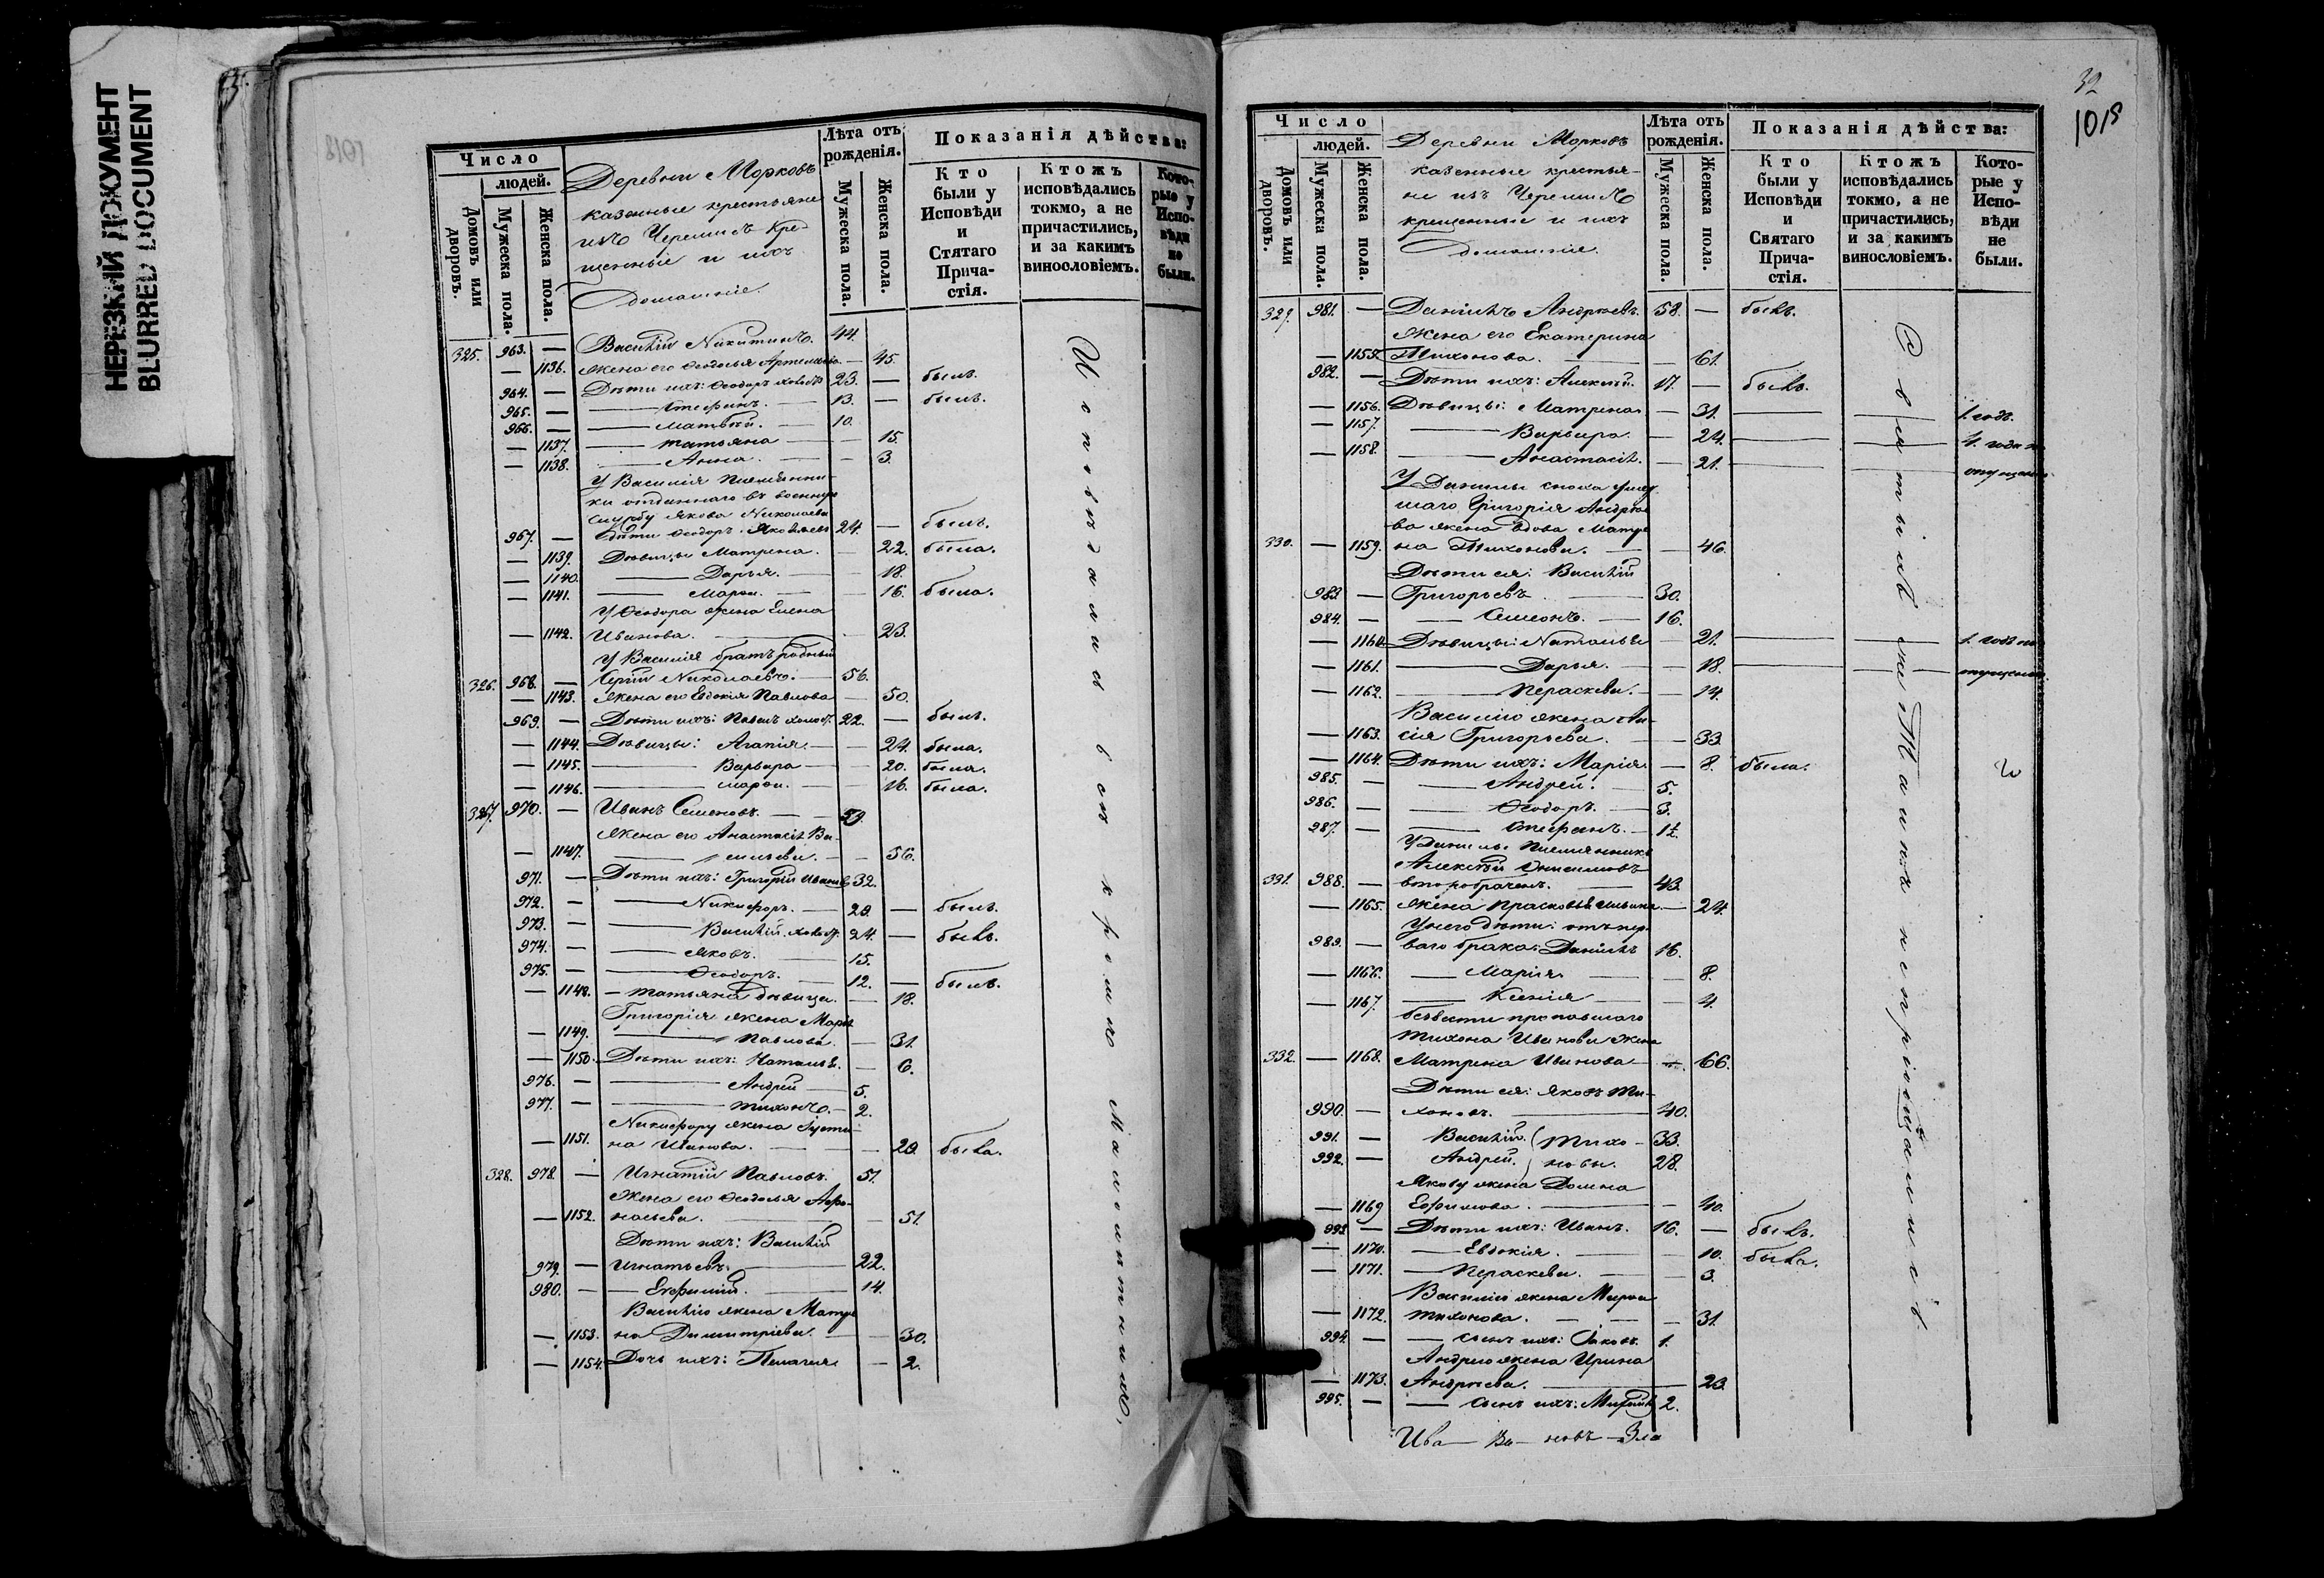 НЕРЕЗКИЙ ДОКУМЕНТ
BLURRED DOCUMENT
Число
людей.
Домовъ или дворовъ.
Мужеска пола.
Женска пола.
Деревни Морковъ
казенные крестьяне
изъ Черемисъ кре-
щенныіе и ихъ
домашніе.
Лѣта отъ рожденія.
Мужеска пола.
Женска пола.
Показанія дѣйства:
Кто были у Исповѣди и Стятаго Прича-стія.
Ктожъ исповѣдались токмо, а не причастились, и за какимъ винословіемъ.
Кото-рые у Испо-вѣди не были.
325. 963. — Василій Никитинъ. 44.
— 1136. Жена его Ѳеодосья Артемьева — 45.
964. — Дѣти ихъ: Ѳеодоръ холостъ 23. — былъ.
965. — Стефанъ. — 13. — былъ.
966. — Матвѣй. — 10.
— 1137. Татьяна — 15.
— 1138. Анна. — 3.
У Василія племянни-
ки отданнаго въ военную
службу Якова Николаева
967. — дѣти Ѳеодоръ Яковлевъ 24. — былъ.
— 1139. Дѣвицы Матрена. — 22. была.
— 1140. Дарья. — 18.
— 1141. Марѳа. — 16. была.
У Ѳеодора жена Елена
— 1142. Иванова. — 23.
У Василія братъ родный
326. 968. — Сергій Николаевъ. — 56.
— 1143. Жена его Евдокія Павлова — 50.
969. — Дѣти ихъ: Павелъ холостъ 22. — былъ.
— 1144. Дѣвицы: Агапія — 24. была.
— 1145. Варвара — 20. была.
— 1146. Марѳа. — 16. была.
327. 970. — Иванъ Семеновъ. — 59.
Жена его Анастасія Ва-
— 1147. сильева. — 56.
971. — Дѣти ихъ: Григорій Ивановъ 32.
972. — Никифоръ. — 29. — былъ.
973. — Василій холостъ. 24. — былъ.
974. — Яковъ. 15.
975. — Ѳеодоръ. 12. — былъ.
— 1148. — Татьяна дѣвица. — 18.
Григорія жена Марья
— 1149. Павлова. — 31.
— 1150. Дѣти ихъ: Наталья. — 6.
976. — Андрей — 5.
977. — Тихонъ. — 2.
Никифору жена Іусти-
— 1151. на Иванова. — 29. была.
328. 978. — Игнатій Павловъ. 51.
Жена его Ѳеодосья Аѳа-
— 1152. насьева. — 51.
Дѣти ихъ: Василій
979. — Игнатьевъ. 22.
980. — Евфимій. 14.
Василію жена Матре
— 1153. на Димитріева. — 30.
— 1154. Дочь ихъ: Пелагия — 2.
Исповѣдались всѣ кромѣ Малолѣтнихъ,
32
1018
Число
людей.
Домовъ или дворовъ.
Мужеска пола.
Женска пола.
Деревни Морковъ
казенные крестья-
не изъ Черемисъ
крещенные и ихъ
домашніе.
Лѣта отъ рожденія.
Мужеска пола.
Женска пола.
Показанія дѣйства:
Кто были у Исповѣди и Святаго Прича-стія.
Ктожъ исповѣдались токмо, а не причастились, и за какимъ винословіемъ.
Кото-рые у Испо-вѣди не были.
329. 981. — Даніилъ Андреевъ. 58. — былъ.
Жена его Екатерина
— 1155. Тихонова. — 61.
982. — Дѣти ихъ: Алексѣй. 17. — былъ.
— 1156. Дѣвицы: Матрена — 31. — 1. годъ.
— 1157. Варвара. — 24. — 4. года по
— 1158. Анастасія. — 21. — опущенію
У Данилы сноха умер
шаго Григорія Андрее
ва жена вдова Матре
330. — 1159. на Тихонова. — 46.
Дѣти ея: Василій
983. — Григорьевъ 30.
984. — Семеонъ. — 16.
— 1160. Дѣвицы: Наталья — 21. — 1. годъ по
— 1161. Дарья. — 18. — опущенію
— 1162. Пераскева. — 14.
Василію жена Ли-
— 1163. сія Григорьева. — 33.
— 1164. Дѣти ихъ: Марія — 8. была.
985. — Андрей. — 5.
986. — Ѳеодоръ. — 3.
987. — Стефанъ. — 1½
У Данилы племянникъ
Алексѣй Онисимовъ
331. 988. — второбраченъ. — 43.
— 1165. Жена Прасковья Ильина. — 24.
У него дѣти: отъ пер
989. — ваго брака: Даніилъ 16.
— 1166. Марія — 8.
— 1167. Ксенія — 4.
безвѣсти пропавшаго
Тихона Иванова жена
332. — 1168. Матрена Иванова — 66.
Дѣти ея: Яковъ Ти-
990. — хоновъ. 40.
991. — Василій. Тихо- 33.
992. — Андрей. новы. 28.
Якову жена Домна
— 1169 Ефимова. — 40.
993 — Дѣти ихъ: Иванъ. 16. — былъ.
— 1170. Евдокія. — 10. была.
— 1171. Пераскева. — 3.
Василію жена Марѳа
— 1172. Тихонова. — 31.
994. — сынъ ихъ: Яковъ. 1.
Андрею жена Ирина
— 1173. Андреева. — 23.
995. — сынъ ихъ: 2.
Святыхъ же Таинъ не пріобщались.
Ива — Ва — новъ — Зла